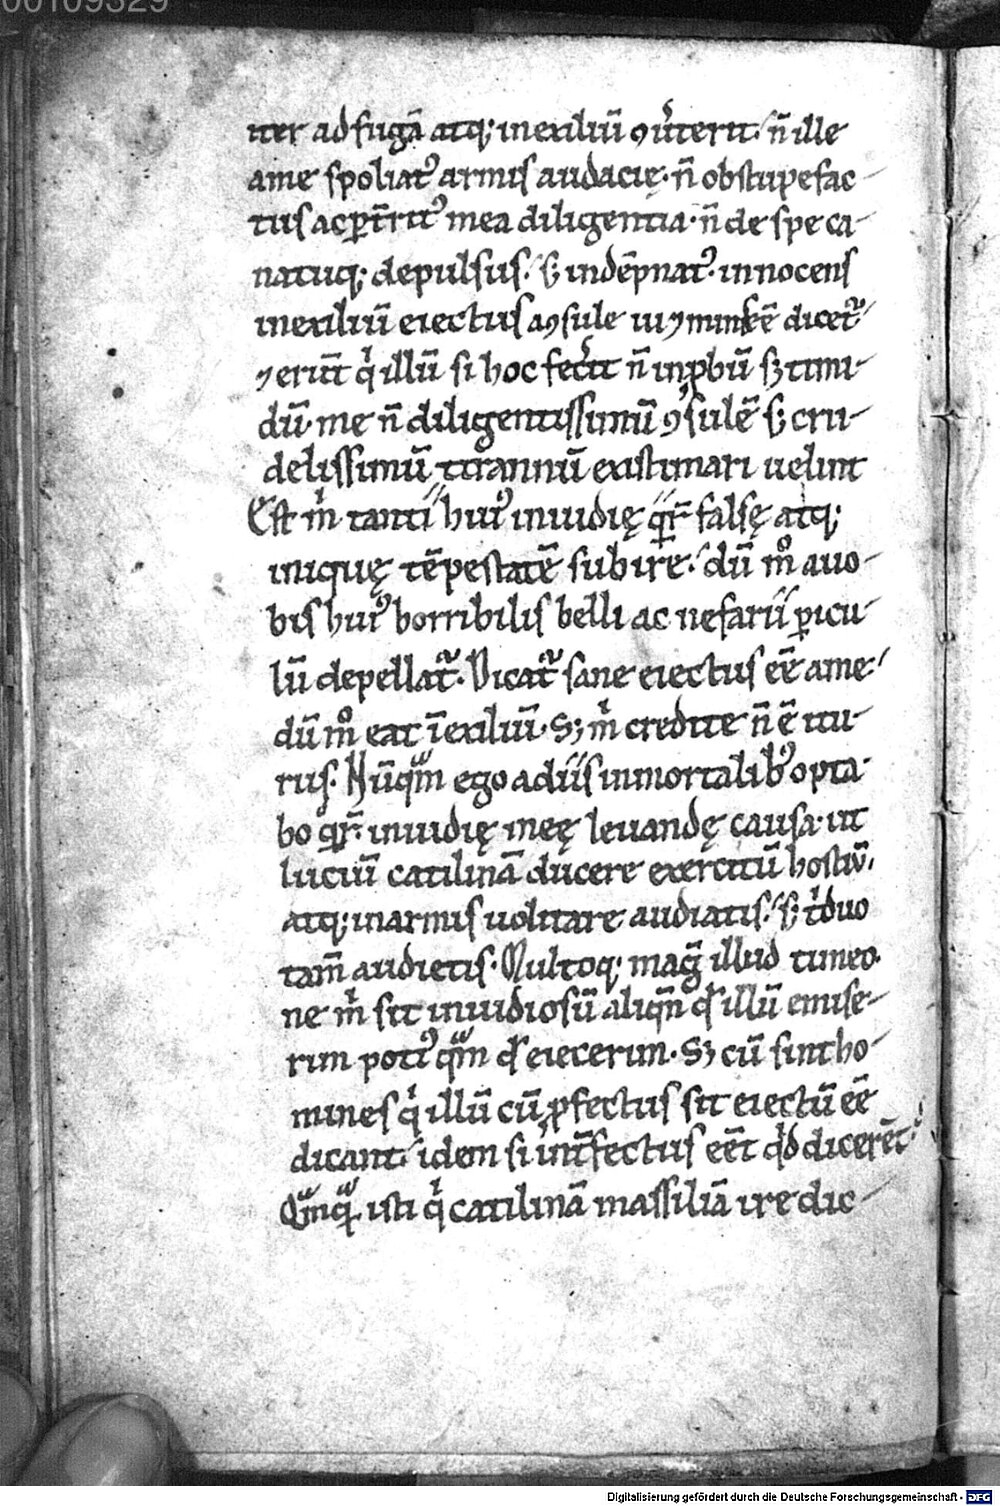 00109329
iter ad fugā atq; inexiliū ꝯůterit. n̄ ille
ame spoliatꝰ armis audacię. n̄ obstupefac-
tus ac ꝑt̄ritꝰ mea diligentia. n̄ de spe ca-
natuq; depulsus. s; indēpnatꝰ. innocens
inexiliū eiectus aꝯsule ui ⁊ minis eē dicet᷑
⁊ erunt qͥ illū si hoc fecͥit n̄ inꝓbū sꝫ timi-
dū. me n̄ diligentissimū ꝯsulē s; cru-
delissimū tirannū existimari uelint
Est m̄ tanti huiꝰ inuidię q̄r̄ falsę atq;
iniquę tēpestatē subire. dū m° auo-
bis huiꝰ horribilis belli ac nefarii ꝑicu-
lū depellat᷑. Dicat᷑ sane eiectus eē ame
dū m° eat ī exiliū. Sꝫ mͥ credite n̄ ē itu-
rus. Nūqᵃm ego adiis inmortalibꝰ opta-
bo q̄r̄ inuidię meę leuandę causa. ut
luciū catilinā ducere exercitū hostiū.
atq; inarmis uolitare audiatis. s; tͥduo
tam̄ audietis. Multoq; maḡ illud timeo.
ne mͥ sit inuidiosū aliqn̄ qd illū emise-
rim potiꝰ qᵃm qd eiecerim. Sꝫ cū sint ho-
mines qͥ illū cū ꝓfectus sit eiectū eē
dicant. idem si int̄fectus eēt qͥd dicerēt.
Qᵃmqᵃ isti qͥ catilinā massiliā ire dic-
Digitalisierung gefördert durch die Deutsche Forschungsgemeinschaft - DFG